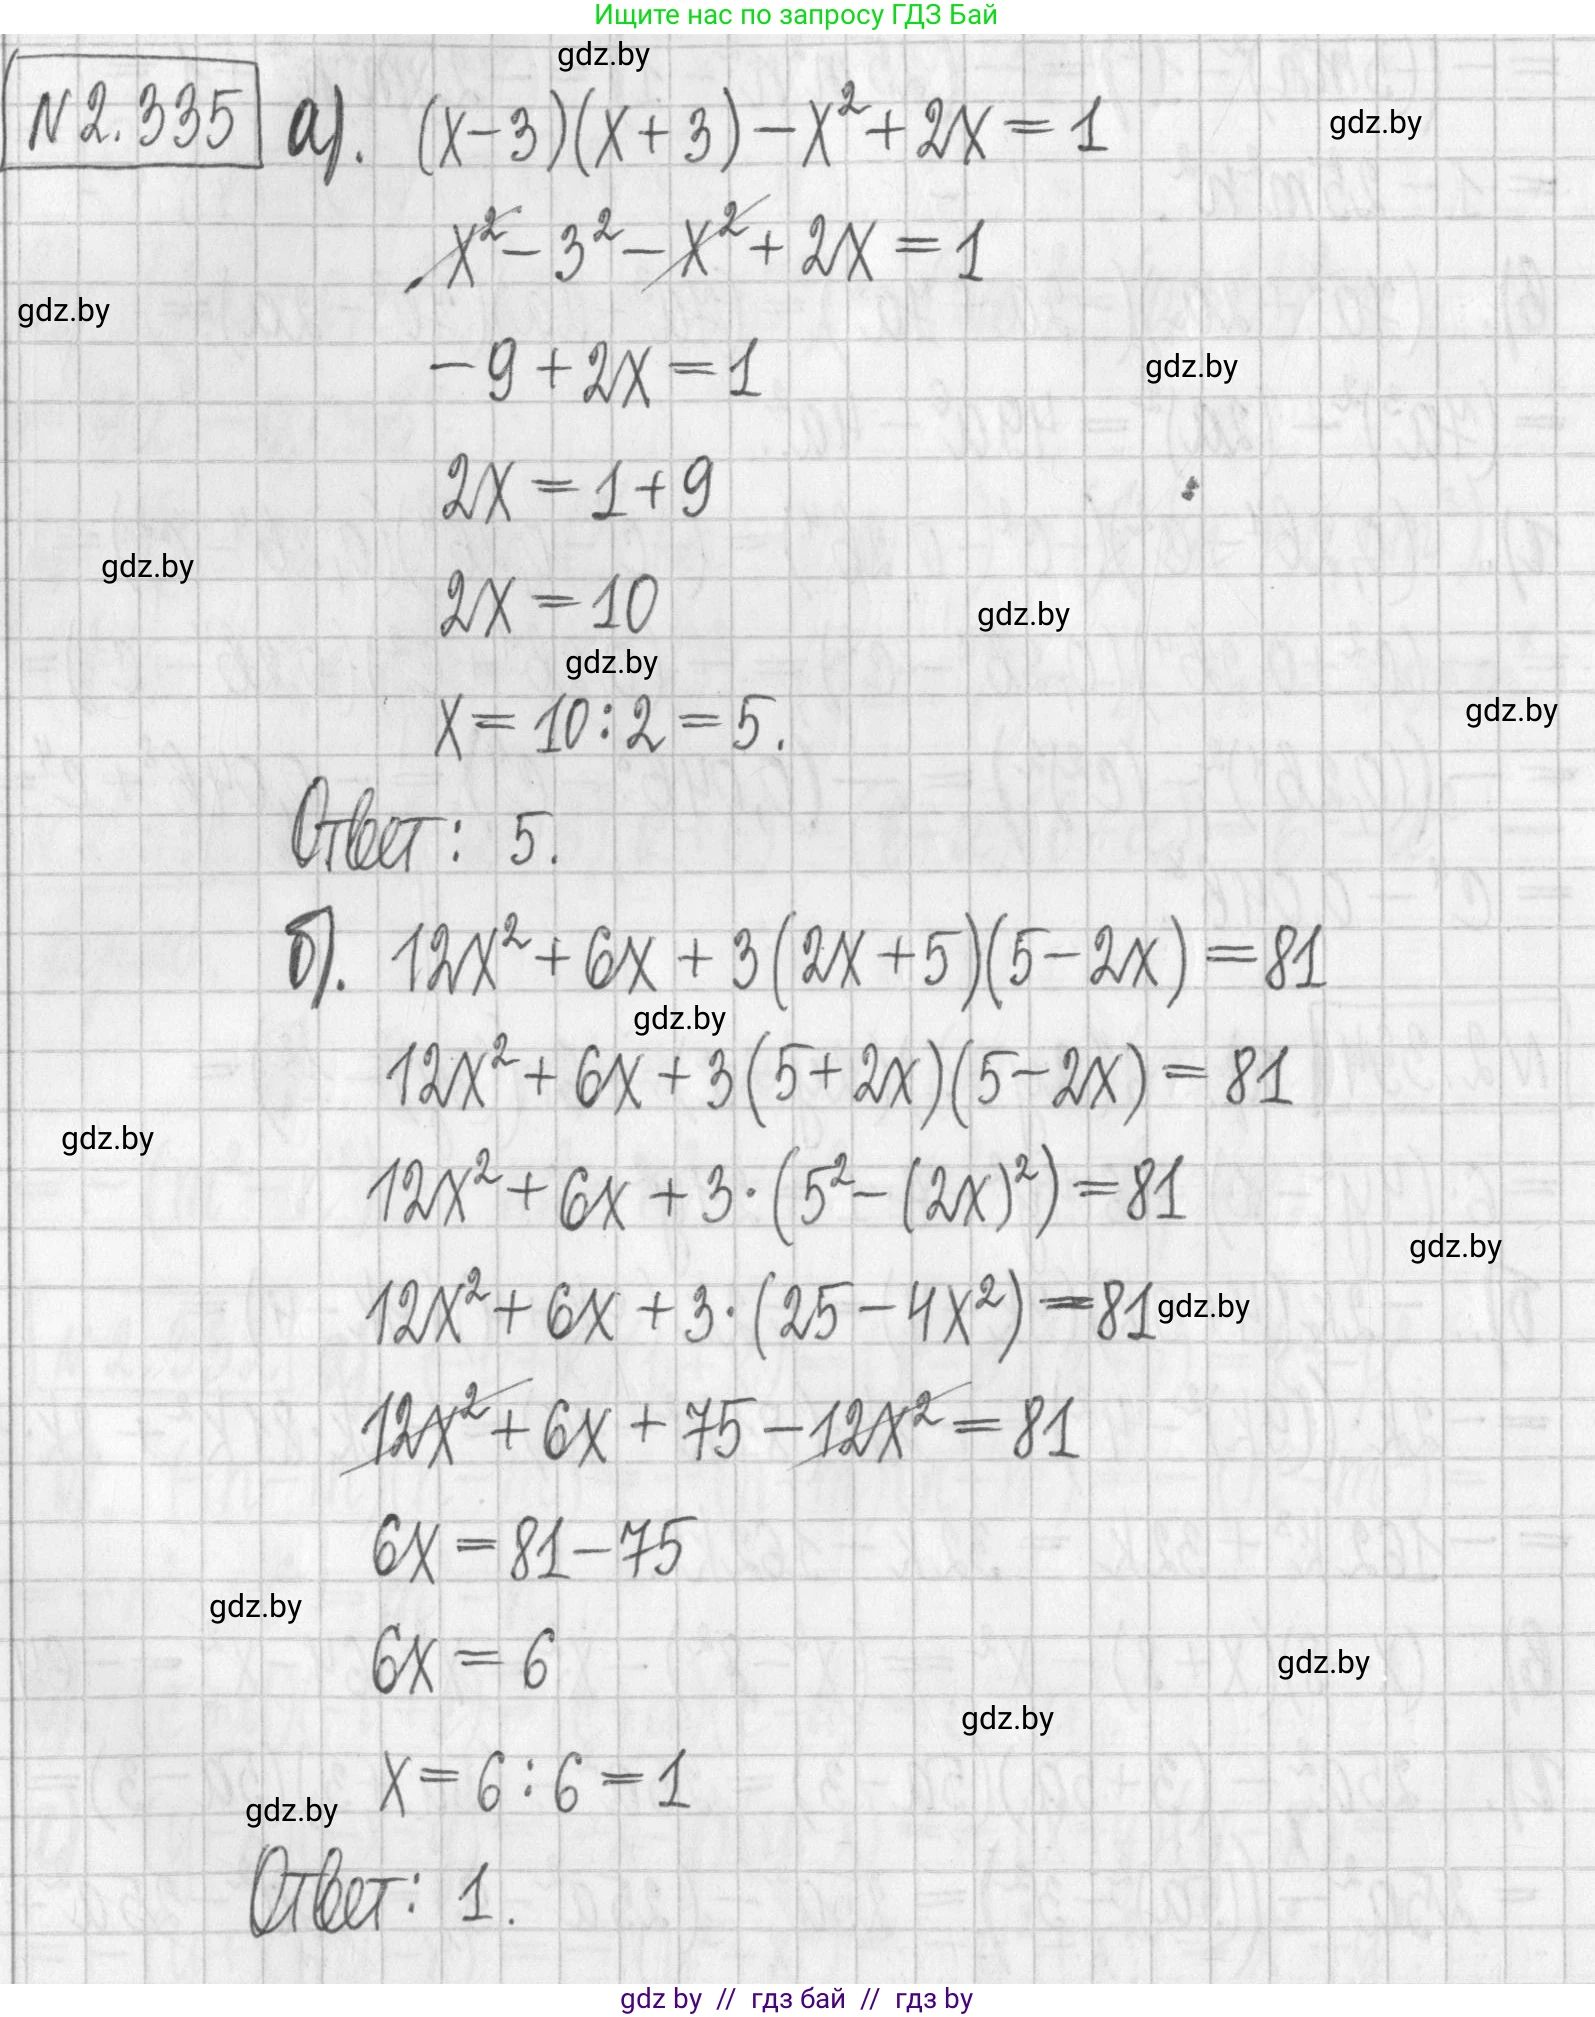 Ищите нас по запросу ГДЗ Бай
gdz.by
№2.335 а). (x-3)(x+3)-x²+2x=1
gdz.by
x²-3²-x²+2x=1
gdz.by
-9+2x=1
gdz.by
2x=1+9
gdz.by
2x=10
gdz.by
gdz.by
x=10:2=5.
gdz.by
Ответ: 5.
б). 12x²+6x+3(2x+5)(5-2x)=81
gdz.by
12x²+6x+3(5+2x)(5-2x)=81
gdz.by
12x²+6x+3·(5²-(2x)²)=81
gdz.by
12x²+6x+3·(25-4x²)=81
gdz.by
12x²+6x+75-12x²=81
6x=81-75
gdz.by
6x=6
gdz.by
gdz.by
x=6:6=1
gdz.by
Ответ: 1.
gdz by // гдз бай // гдз by